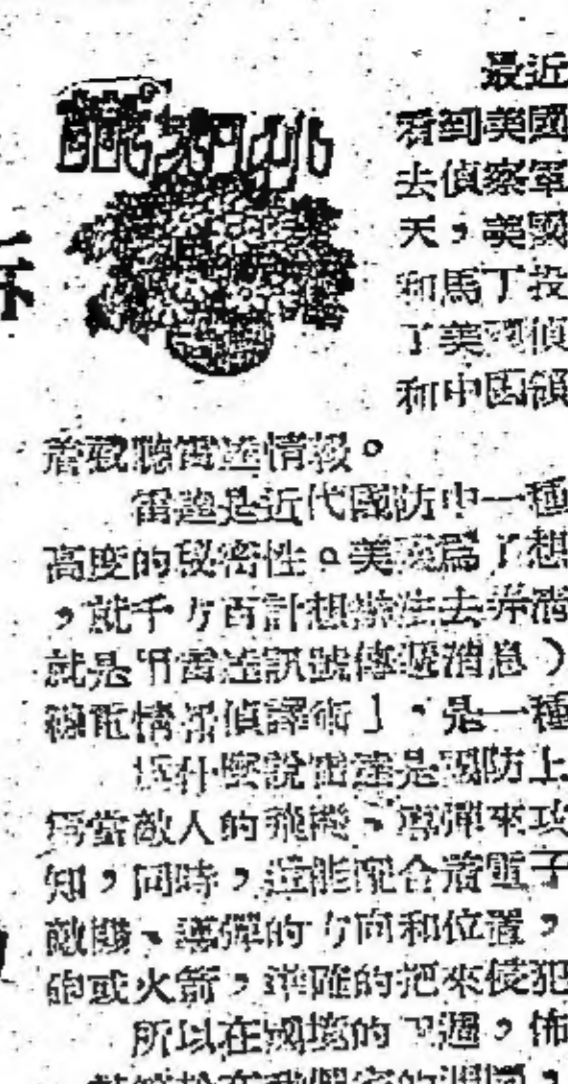 最近
看到美國
去偵察軍
天，美國
和馬丁投
了美國偵
和中國領
着或聽雷達情報。
雷達是近代國防中一種
高度的秘密性。美國為了想
，就千方百計想辦法去弄清
就是用雷達訊號傳遞消息）
線電情報偵譯術」，是一種
為什麼說雷達是國防上
為當敵人的飛機、導彈來攻
知，同時，還能配合着電子
敵機、導彈的方向和位置，
砲或火箭，準確的把來侵犯
所以在國境的四週，佈